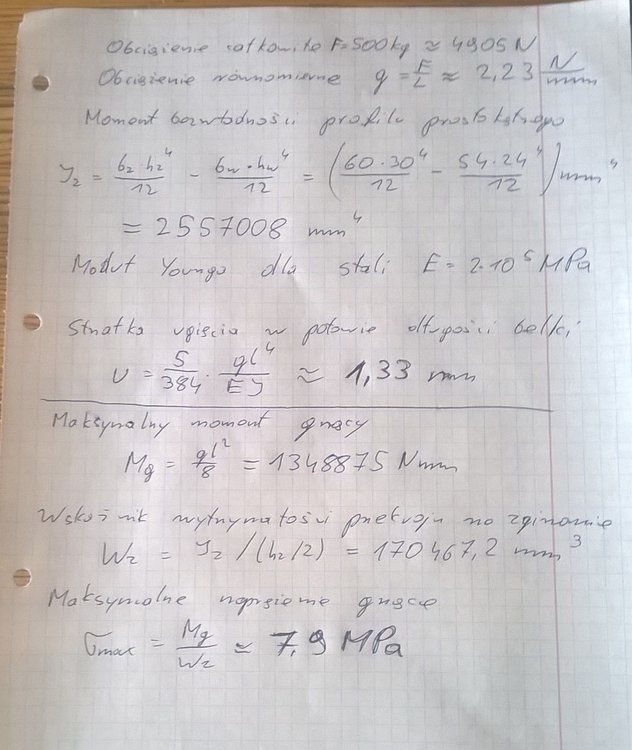 Obciążenie całkowite F=500kg ≈ 4905 N
Obciążenie równomierne q = F/L ≈ 2,23 N/mm
Moment bezwładności profilu prostokątnego
Jz = bz·hz⁴/12 - bw·hw⁴/12 = (60·30⁴/12 - 54·24⁴/12) mm⁴
= 2557008 mm⁴
Moduł Younga dla stali E = 2·10⁵ MPa
Strzałka ugięcia w połowie długości belki
U = 5/384 · ql⁴/EJ ≈ 1,33 mm
Maksymalny moment gnący
Mg = ql²/8 = 1348875 Nmm
Wskaźnik wytrzymałości przekroju na zginanie
Wz = Jz/(hz/2) = 170467,2 mm³
Maksymalne naprężenie gnące
σmax = Mg/Wz ≈ 7,9 MPa